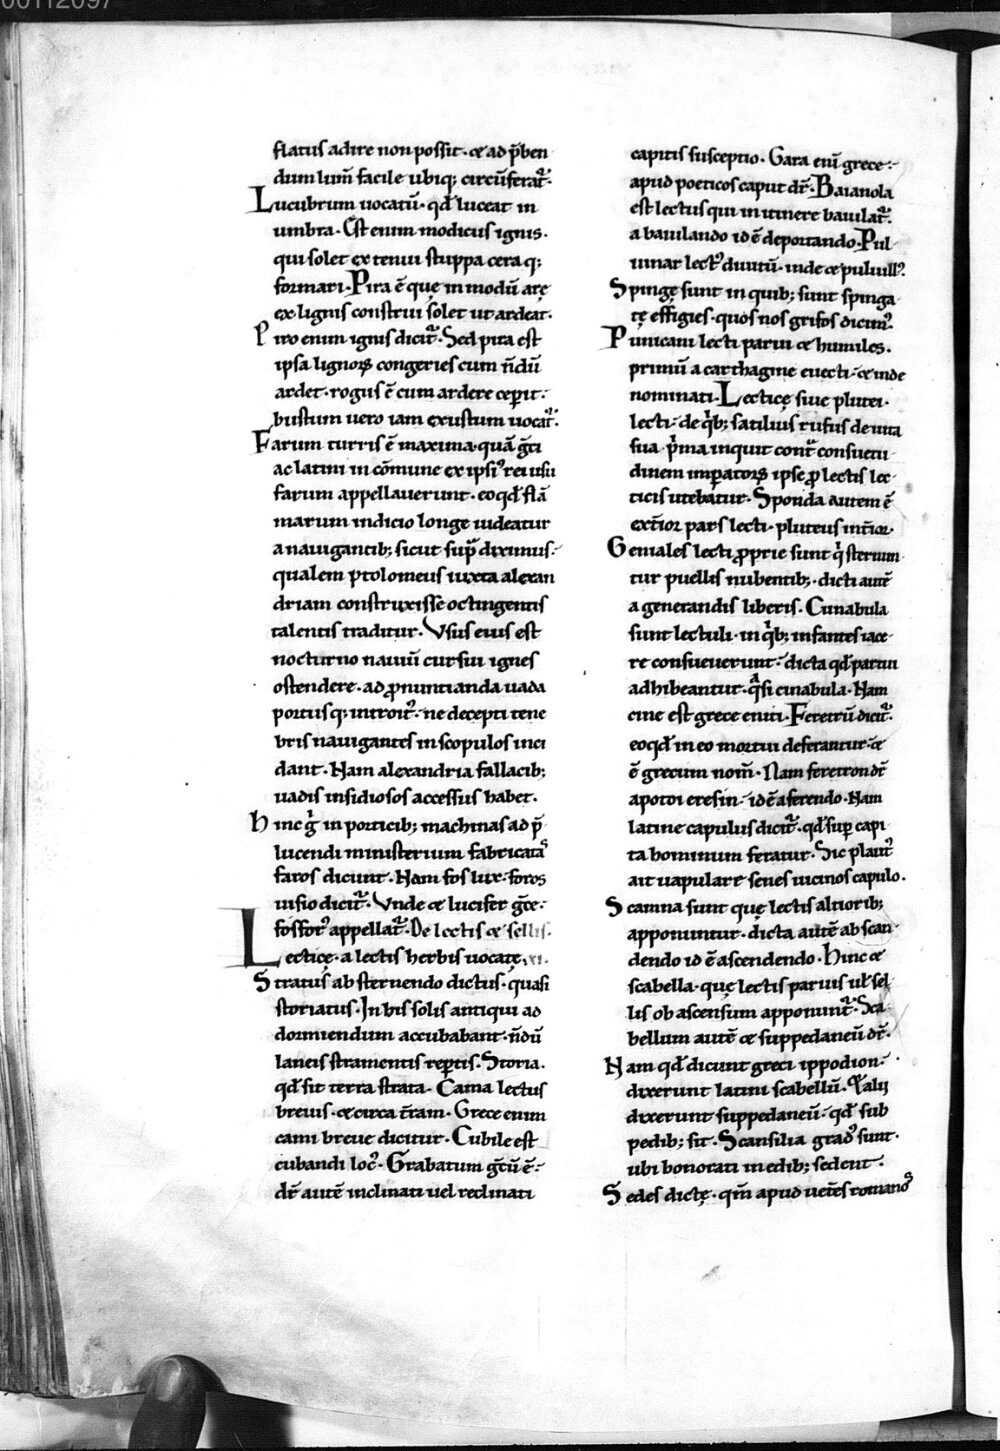 00112097
flatus adire non possit · & ad p̄ben
dum lum̄ facile ubiq; circūferat᷑.
Lucubrum uocatū · qđ luceat in
umbra · Est enim modicus ignis.
qui solet ex tenui stuppa cera q;
formari · Pira ē quę in modū arę
ex lignis construi solet ut ardeat.
Piro enim ignis dicit᷑. Sed pira est
ipsa lignoꝝ congeries cum ñdū
ardet · rogus ē cum ardere ceperit:
bustum uero iam exustum uocat᷑.
Farum turris ē maxima · quā g̃ci
ac latini in cōmune ex ipsiꝰ rei usu
farum appellauerunt · eo qđ flā
marum indicio longe uideatur
a nauigantib; sicut sup̃ diximus:
qualem ptolomeus iuxta alexan
driam construxisse octingentis
talentis traditur · Vsus eius est
nocturno nauiū cursui ignes
ostendere · ad ꝓnuntianda uada
portus q; introitꝰ · ne decepti tene
bris nauigantes in scopulos inci
dant · Nam alexandria fallacib;
uadis insidiosos accessus habet.
hinc g̊ in porticib; machinas ad p̄
lucendi ministerium fabricatas
faros dicunt · Nam fos lux · foros
uisio dicit᷑. Vnde & lucifer g̃ce:
fosforꝰ appellat᷑. De lectis & sellis.
Lectice · a lectis herbis uocatę.
Stratus ab sternendo dictus · quasi
storiatus · In his solis antiqui ad
dormiendum accubabant · ñdū
laneis stramentis rep̱tis · Storia.
qđ sit terra strata · Cama lectus
breuis · & circa t̄ram · Grece enim
cami breue dicitur · Cubile est
cubandi locꝰ · Grabatum g̃cū ē:
dr̄ autē inclinati uel reclinati
capitis susceptio · Gara eni grece:
apud poeticos caput dr̄ · Baianola
est lectus qui in itinere baiulat᷑.
a baiulando id ē deportando · Pul
uinar lectꝰ diuitū · inde & puluillꝰ.
Spingę sunt in quib; sunt spinga
tę effigies · quos nos grifos dicimꝰ.
Punicani lecti parui & humiles.
primū a carthagine euecti · & inde
nominati · Lecticę siue plutei·
lecti · de q̊b; satilius rufus de uita
sua · p̊ma inquit cont᷑ consuetu
dinem imperatoꝝ ipse ꝓ lectis lec
ticis utebatur · Sponda autem ē
exterior pars lecti · pluteus int̄ior.
Geniales lecti ꝓprie sunt q̊ sternun
tur puellis nubentib; · dicti autē
a generandis liberis · Cunabula
sunt lectuli · in q̊b; infantes iace
re consueuerunt · dicta qđ partui
adhibeantur · q̊si cinabula · Nam
cine est grece eniti · Feretrū dicit᷑.
eo qđ in eo mortui deferantur · &
ē grecum nom̄ · Nam feretron dr̄
apotoi eresin · id ē a ferendo · Nam
latine capulus dicit᷑ · qđ sup̱ capi
ta hominum feratur · Sic plautꝰ
ait uapulare senes uicinos capulo.
Scamna sunt quę lectis altiorib;
apponuntur · dicta autē ab scan
dendo id ē ascendendo · hinc &
scabella · quę lectis paruis uł sel
lis ob ascensum apponunt᷑ · Sca
bellum autē & suppedaneū dr̄.
Nam qđ dicunt greci ippodion·
dixerunt latini scabellū. & alii
dixerunt suppedaneū · qđ sub
pedib; sit · Scansilia gradꝰ sunt·
ubi honorati in edib; sedent.
Sedes dictę · qm̄ apud ueteres romanos